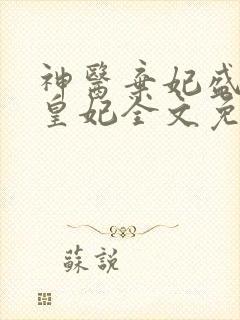 神醫棄妃盛
皇妃全文免
蘇說